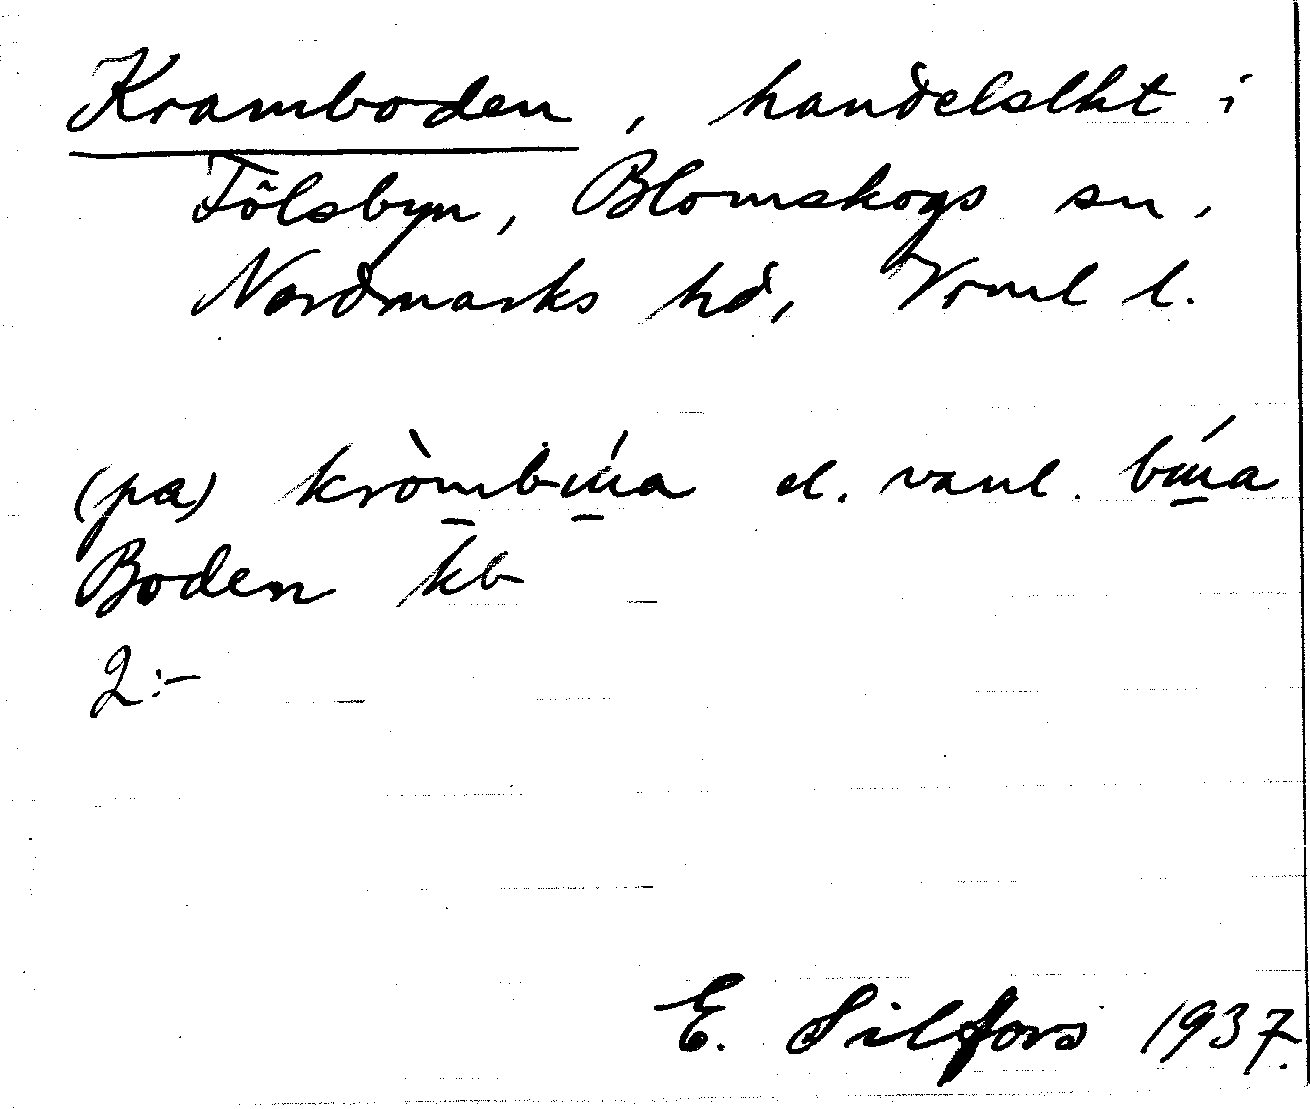 Kramboden, handelslht i
Fölsbyn, Blomskogs sn,
Nordmarks hd, Vrml l.
(pa) kròmbúa el. vanl. búa
Boden kb
2:-
E. Silfors 1937.